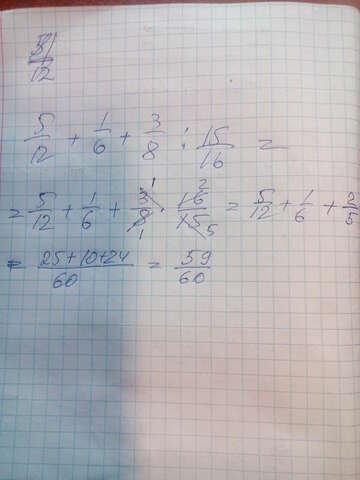 5/12 + 1/6 + 3/8 : 15/16 =
= 5/12 + 1/6 + 3/8 · 16/15 = 5/12 + 1/6 + 2/5
= 25+10+24/60 = 59/60